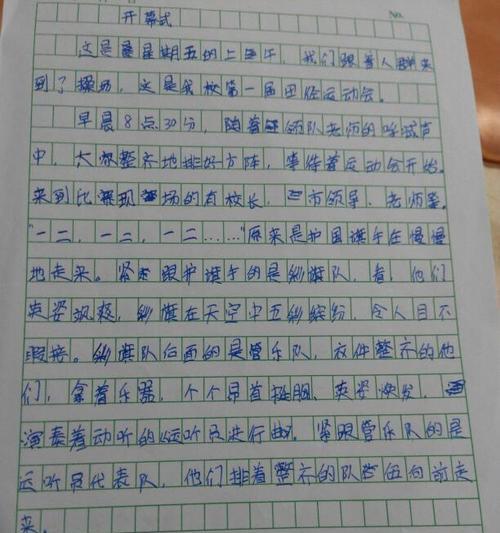 No.
开幕式
这是星期五的上午，我们跟着人群来
到了操场，这是我校第一届田径运动会。
早晨8点30分，随着领队老师的呼喊声
中，大家整齐地排好方阵，等待着运动会开始。
来到比赛现场的有校长，市领导、老师等。
"一二，一二，一二……"原来是护国旗手在慢慢
地走来。紧跟护旗手的是彩旗队，看，他们
英姿飒爽，彩旗在天空中五彩缤纷，令人目不
暇接。彩旗队后面的是管乐队，衣件整齐的他
们，拿着乐器，个个昂首挺胸，英姿焕发，
演奏着动听的《运动员进行曲。紧跟管乐队的是
运动员代表队，他们排着整齐的队伍向前走
来。